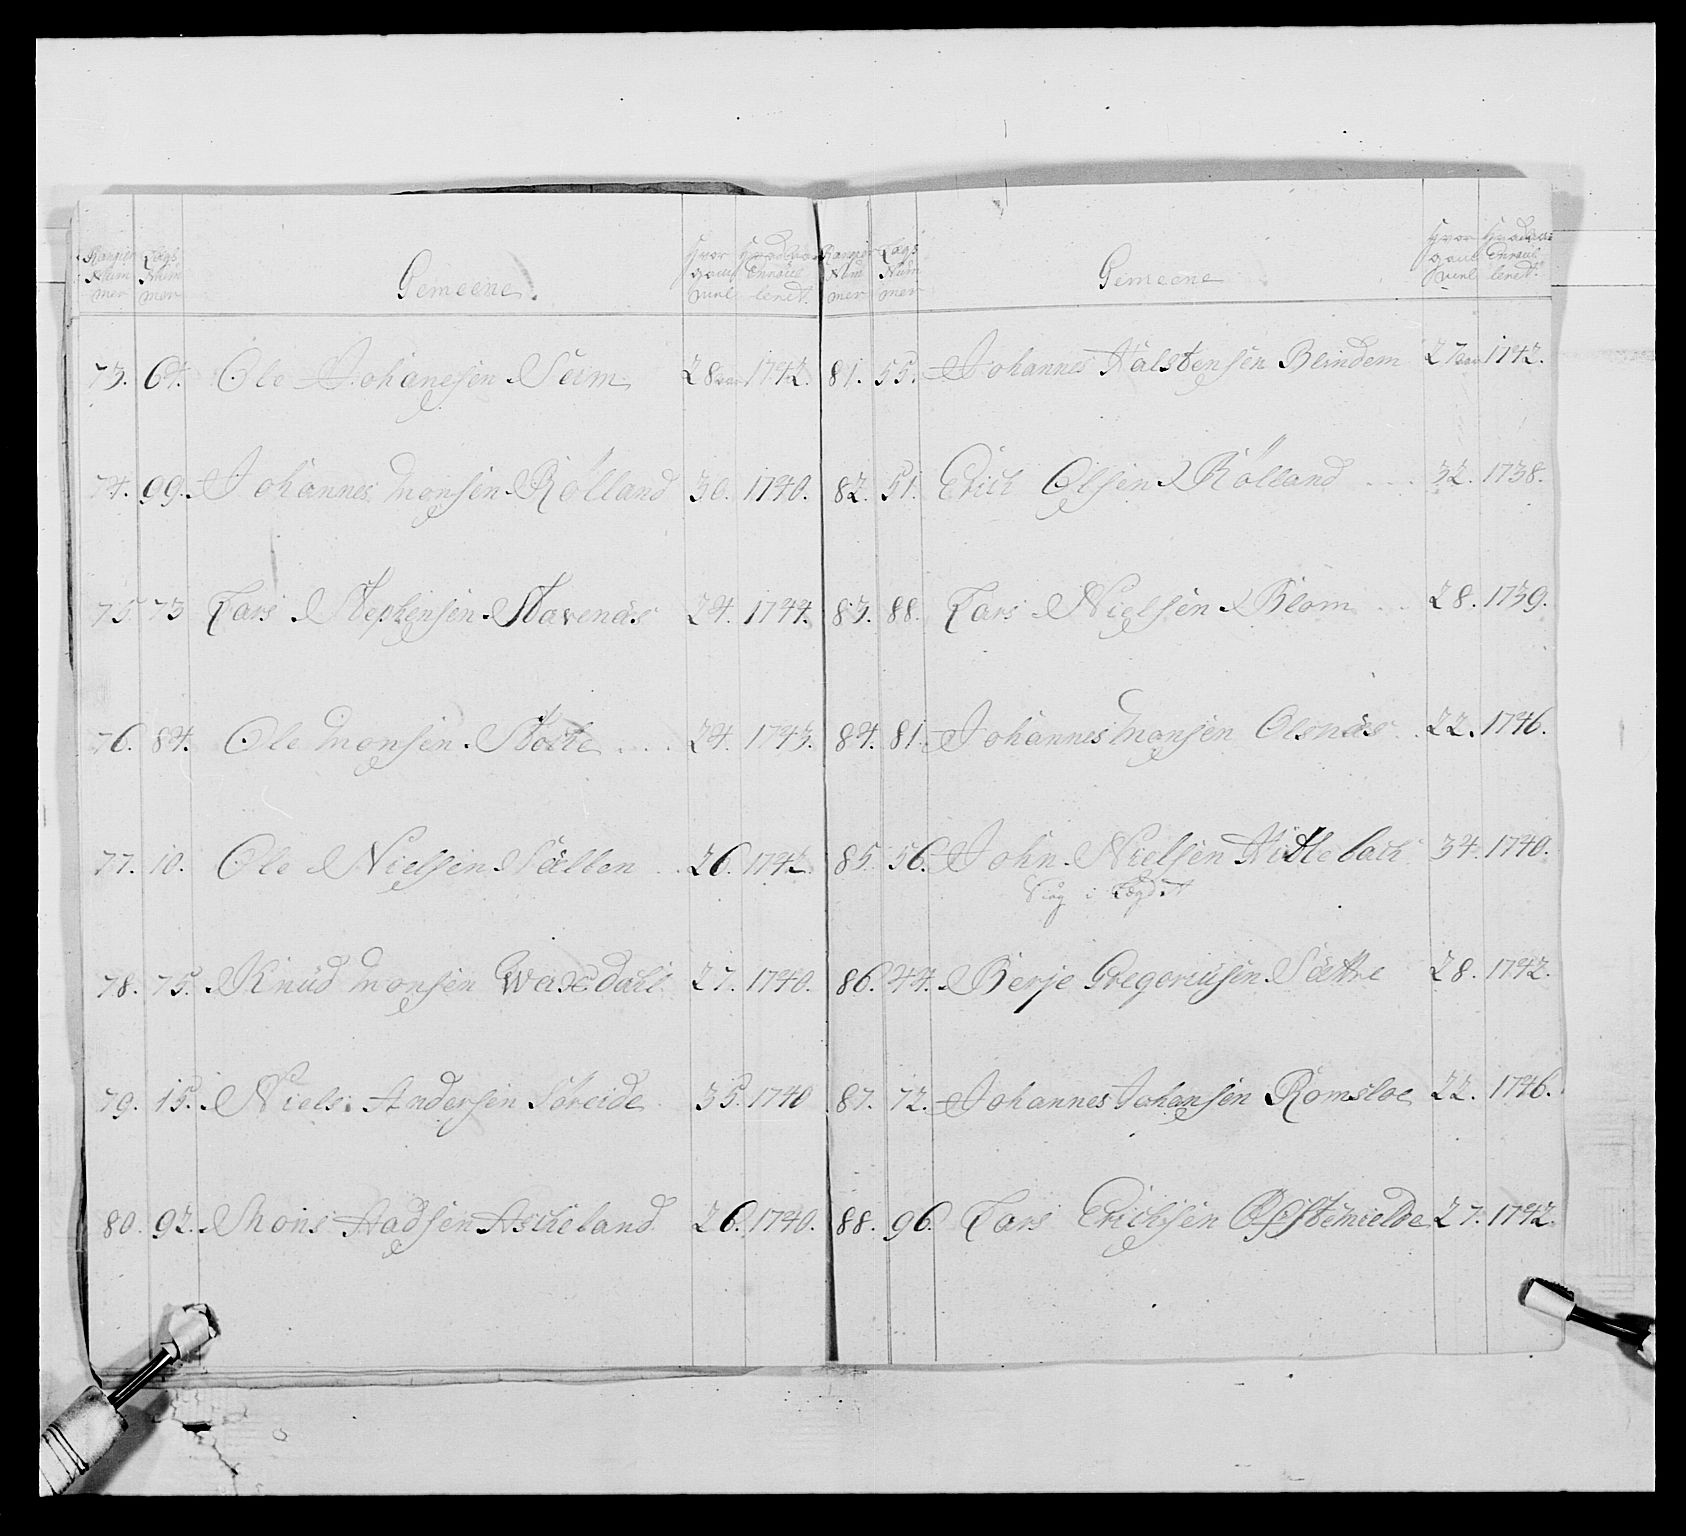 Rangier Num mer | Lægs Num mer | Gemeene. | Hvor gam mel | Hvad Aar Enroul leret.
73. | 64. | Ole Johanesen Seim | 28 aar | 1742.
74. | 99. | Johannes Monsen Rölland | 30. | 1740.
75. | 73 | Lars Stephensen Stavenäs | 24. | 1744.
76. | 84. | Ole Monsen | 24. | 1743.
77. | 10. | Ole Nielsen | 26. | 1742.
78. | 75. | Knud Monsen Waxdahl | 27. | 1740.
79. | 15. | Niels Andersen Söreide | 35. | 1740
80. | 92. | Mons Aadsen Askeland | 26. | 1740.
Rangier Num mer | Lægs Num mer | Gemeene | Hvor gam mel | Hvad Aar Enroul leret.
81. | 55. | Johannes Halstensen Blindem | 27 aar | 1742.
82. | 51. | Erich Olsen Rölland | 32. | 1738.
83. | 88. | Lars Nielsen Blom | 28. | 1739.
84. | 81. | Johannes Monsen Olsnäs | 22. | 1746.
85. | 56. | John Nielsen Hitlebach | 34. | 1740.
Siug i
86. | 44. | Berje Gregoriusen Sættre | 28. | 1742.
87. | 72. | Johannes Johansen Romsloe | 22. | 1746.
88. | 96. | Lars Erichsen | 27. | 1742.